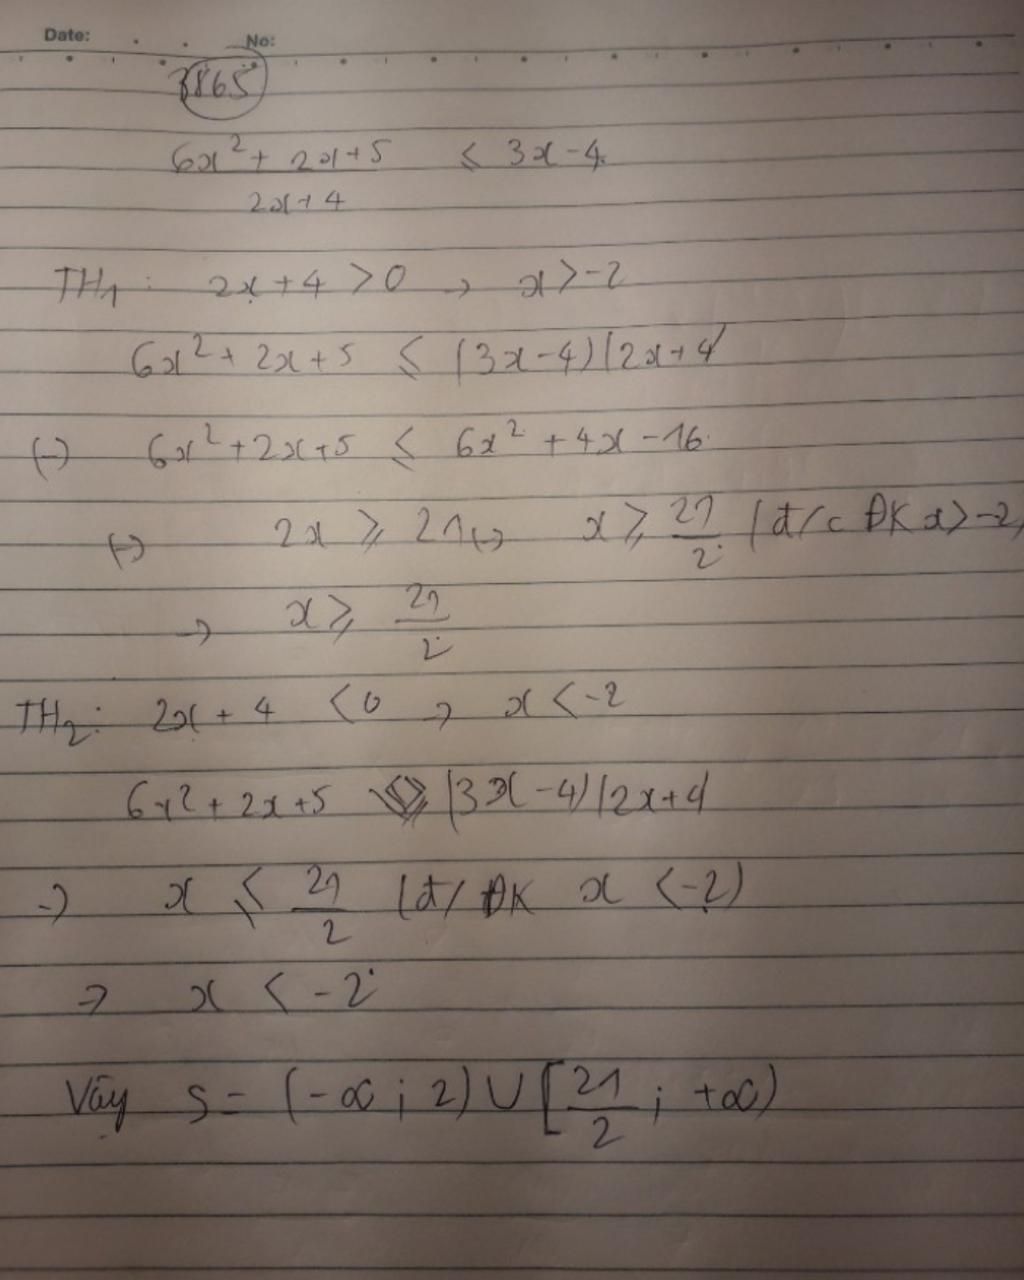 Date: No:
3865
6x² + 2x+5 ≤ 3x-4
2x+4
TH1: 2x+4 >0 → x>-2
6x² + 2x+5 ≤ (3x-4)(2x+4
(-) 6x² +2x+5 ≤ 6x² +4x -16
(-) 2x ≥ 21 (-) x ≥ 21/2 (đ/c ĐK x>-2)
→ x ≥ 21/2
TH2: 2x + 4 <0 → x < -2
6x² + 2x+5 ≥ (3x-4)(2x+4
→ x ≤ 21/2 (đ/ ĐK x <-2)
→ x < -2
Vậy S= (-∞; 2) ∪ [21/2; +∞)